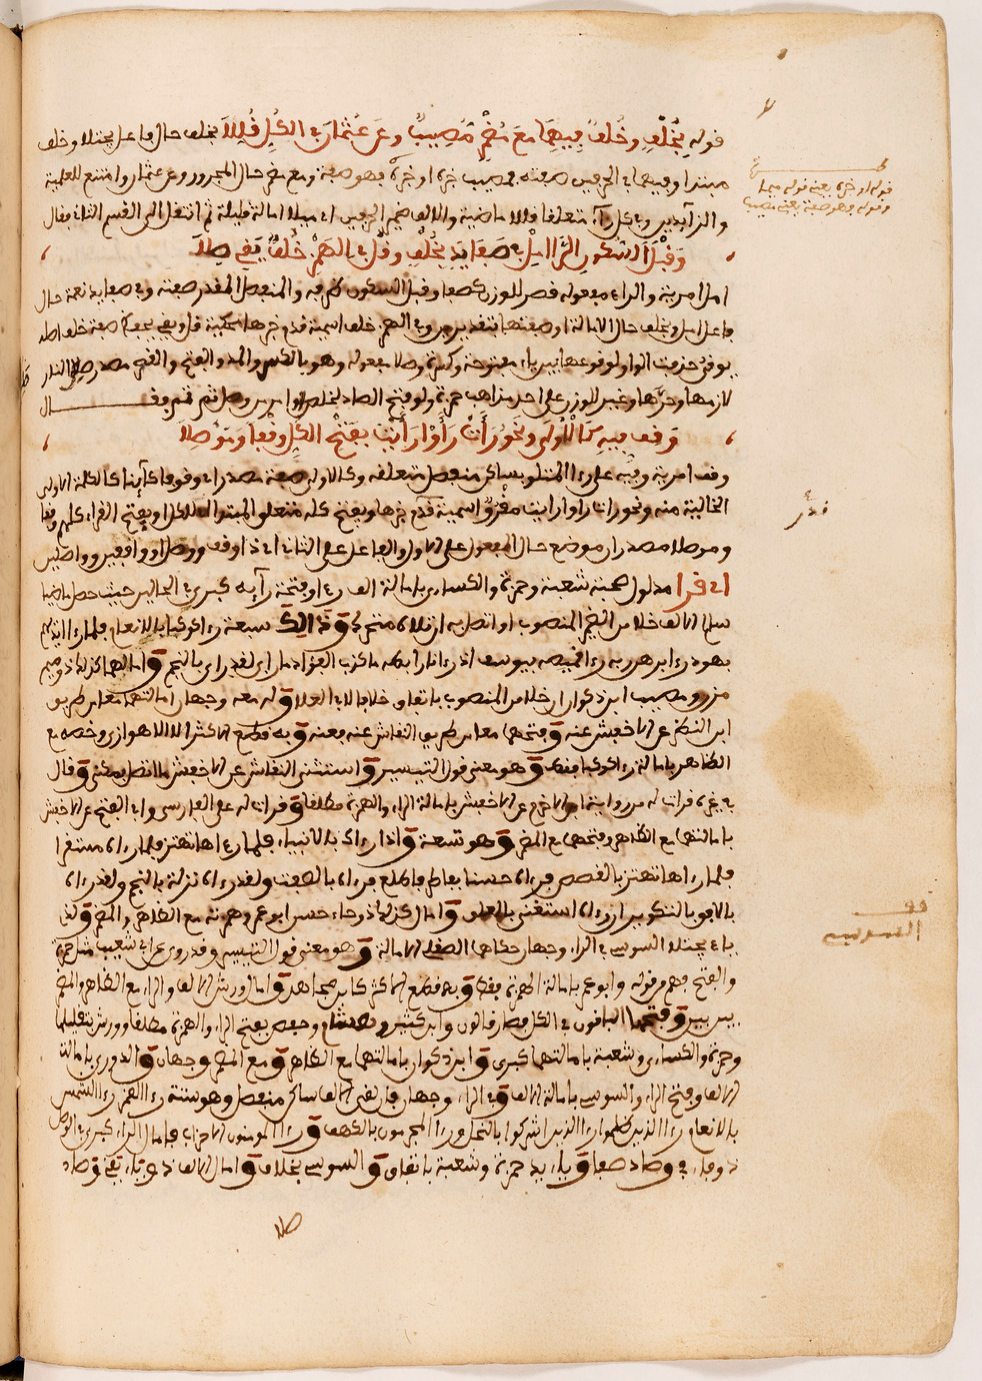 قوله بخلف وخلف فيهما مع مضمر مصيب وعن عثمان في الكل قللا بخلف حال فاعل يجتلا وخلف
مبتدا وفيهما في الحرفين صفته مصيب خبره او خبره فهو صفة ومع مضمر حال المجرور وعن عثمان وامتنع للعلمية
والزايدين وفي كل متعلقا قللا ماضية والالف ضمير الحرفين اي ميلا امالة قليلة ثم انتقل الى القسم الثاني فقال
وقبل السكون الرا امل في صفا يد بخلف وقل في الهمز خلف يقي صلا
امل امرية والراء مفعوله قصر للوزن كصفا وقبل السكون ظرفه والمنفصل المقدر صفته وفي صفا يد نعمة حال
فاعل امل وبخلف حال الامالة او صفتها بتقدير وفي الهمز خلف اسمية قدم خبرها محكية قل ويقي صفة خلف اصله
يوقي حذفت الواو لوقوعها بين ياء مفتوحة وكسرة وصلا مفعوله وهو بالكسر والمد والفتح والقصر مصدر صلى النار
لازمها وحرها وغير للوزن على احد مذاهب حمزة ولو فتح الصاد لخلص ثم تمم فقال
وقف فيه كالاولى ونحو رأت رأوا رأيت بفتح الكل وقفا وموصلا
وقف امرية وفيه على راء المتلو بساكن منفصل متعلقه وكالاولى صفة مصدر اي وقوفا كائنا كالكلمة الاولى
الخالية منه ونحو رات راوا رايت مقرو اسمية قدم خبرها وبفتح كله متعلق المبتدا للكل او بفتح القراء كلهم وقفا
وموصلا مصدران موضع حال المفعول على الاول والفاعل على الثاني اي ذا وقف ووصل او واقفين وواصلين
اي قرا مدلول صحبة شعبة وحمزة والكساءي بامالة الف رءا وفتحة رآيه كبرى في الحالين حيث حصل ماضيا
سلما الالف خلا من الضمير المنصوب او اتصل به ان تلاه متحرك وذلك سبعة رءا كوكبا بالانعام فلما رءا ايديهم
بهود رءا برهن ربه رءا قميصه بيوسف اذ رءا نارا بطه ما كذب الفؤاد ما رءاى لقد رءاى بالنجم وامالهما كذلك ذو ميم
مزن ومصيب ابن ذكوان ان خلا من المنصوب باتفاق خلافا لابي العلا وله معه وجهان امالتهما معا من طريق
ابن النضر عن الاخفش عنه وفتحهما معا من طريق النقاش عنه فعنه وبه قطع الاكثر الا الاهوازي وخصه مع
الظاهر بامالة رءا كوكبا فقط وهو معنى قول التيسير واستثنى النقاش عن الاخفش ما اتصل بمكنى وقال
في غيره قرات له من رواية ابن الاخرم عن الاخفش بامالة الراء والهمزة مطلقا وقرات له على الفارسي واب الفتح عن الاخفش
بامالتهما مع الظاهر وفتحهما مع المضمر وهو تسعة واذا رءاك بالانبياء فلما رءاها تهتز فلما رءاه مستقرا
فلما رءاها تهتز بالقصص فرءاه حسنا بفاطر فاطلع فرءاه بالصفت ولقد رءاه نزلة بالنجم ولقد رءاه
بالافق بالتكوير ان رءاه استغنى بالعلق وامال كذلك ذو حاء حسن ابو عمرو همزته مع الظاهر والمضمر ولذي
ياء يجتلا السوسي في الراء وجهان حكاهما الصقلي الامالة وهو معنى قول التيسير وقد روي عن ابي شعيب مثل حمزة
والفتح فهم من قوله وابو عمرو بامالة الهمزة فقط وبه قطع الاكثر كابن مجاهد وامال ورش الالف والراء مع الظاهر والمضمر
بين بين وفتحهما الباقون في الكل فصار قالون وابن كثير وهشام وحفص بفتح الراء والهمزة مطلقا وورش بتقليلهما
وحمزة والكساءي وشعبة بامالتهما كبرى وابن ذكوان بامالتهما مع الظاهر ومع المضمر وجهان والدوري بامالة
الالف وفتح الراء والسوسي بامالة الالف وفي الراء وجهان فان لقي الالف ساكن منفصل وهو ستة رءا القمر رءا الشمس
بالانعام رءا الذين ظلموا رءا الذين اشركوا بالنحل ورءا المجرمون بالكهف ورءا المومنون الاحزاب فامال الراء كبرى في الوصل
ذو فاء في وصاد صفا وياء يد حمزة وشعبة باتفاق والسوسي بخلاف وامال الالف ذو ياء يقي وصاد
صلا
قوله او خبره يعني قوله فيهما
وقوله فهو صفة يعني مصيب
السوسي